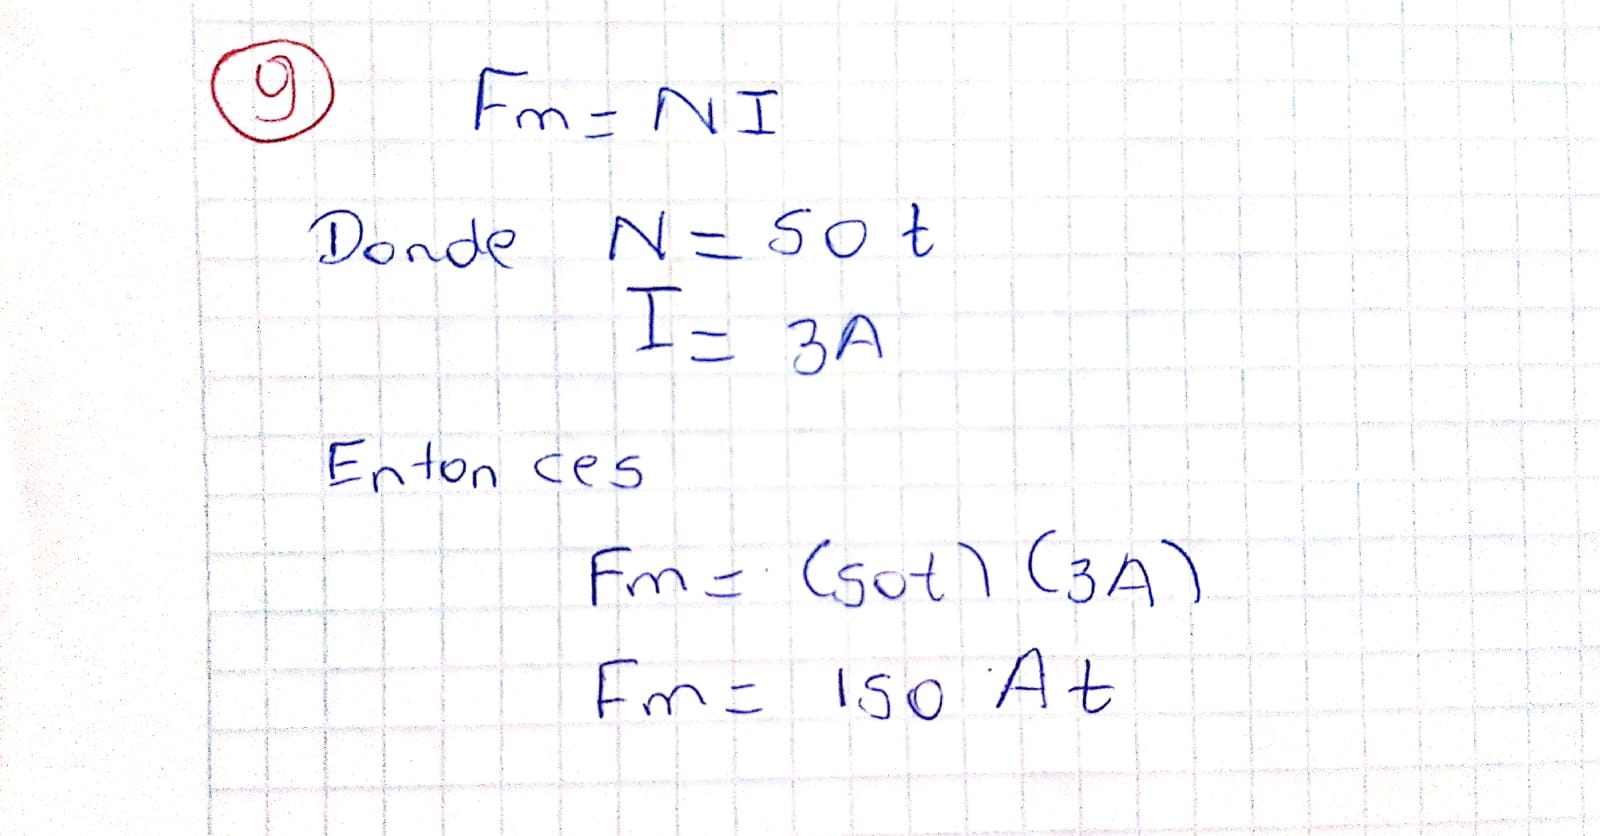 9
Fm = NI
Donde N = 50 t
I = 3A
Entonces
Fm = (50t) (3A)
Fm = 150 At